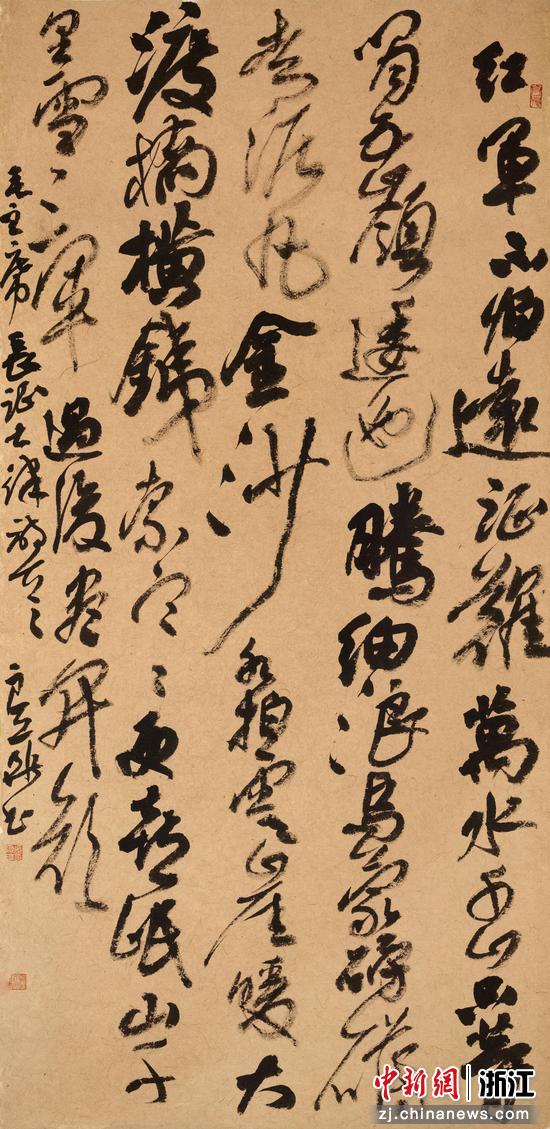 紅軍不怕遠征難萬水千山只等
閒五嶺逶迤騰細浪烏蒙磅礴
走泥丸金沙水拍雲崖暖大
渡橋橫鐵索寒更喜岷山千
里雪三軍過後盡開顏
毛主席長征七律詩 書
中新網 浙江
zj.chinanews.com